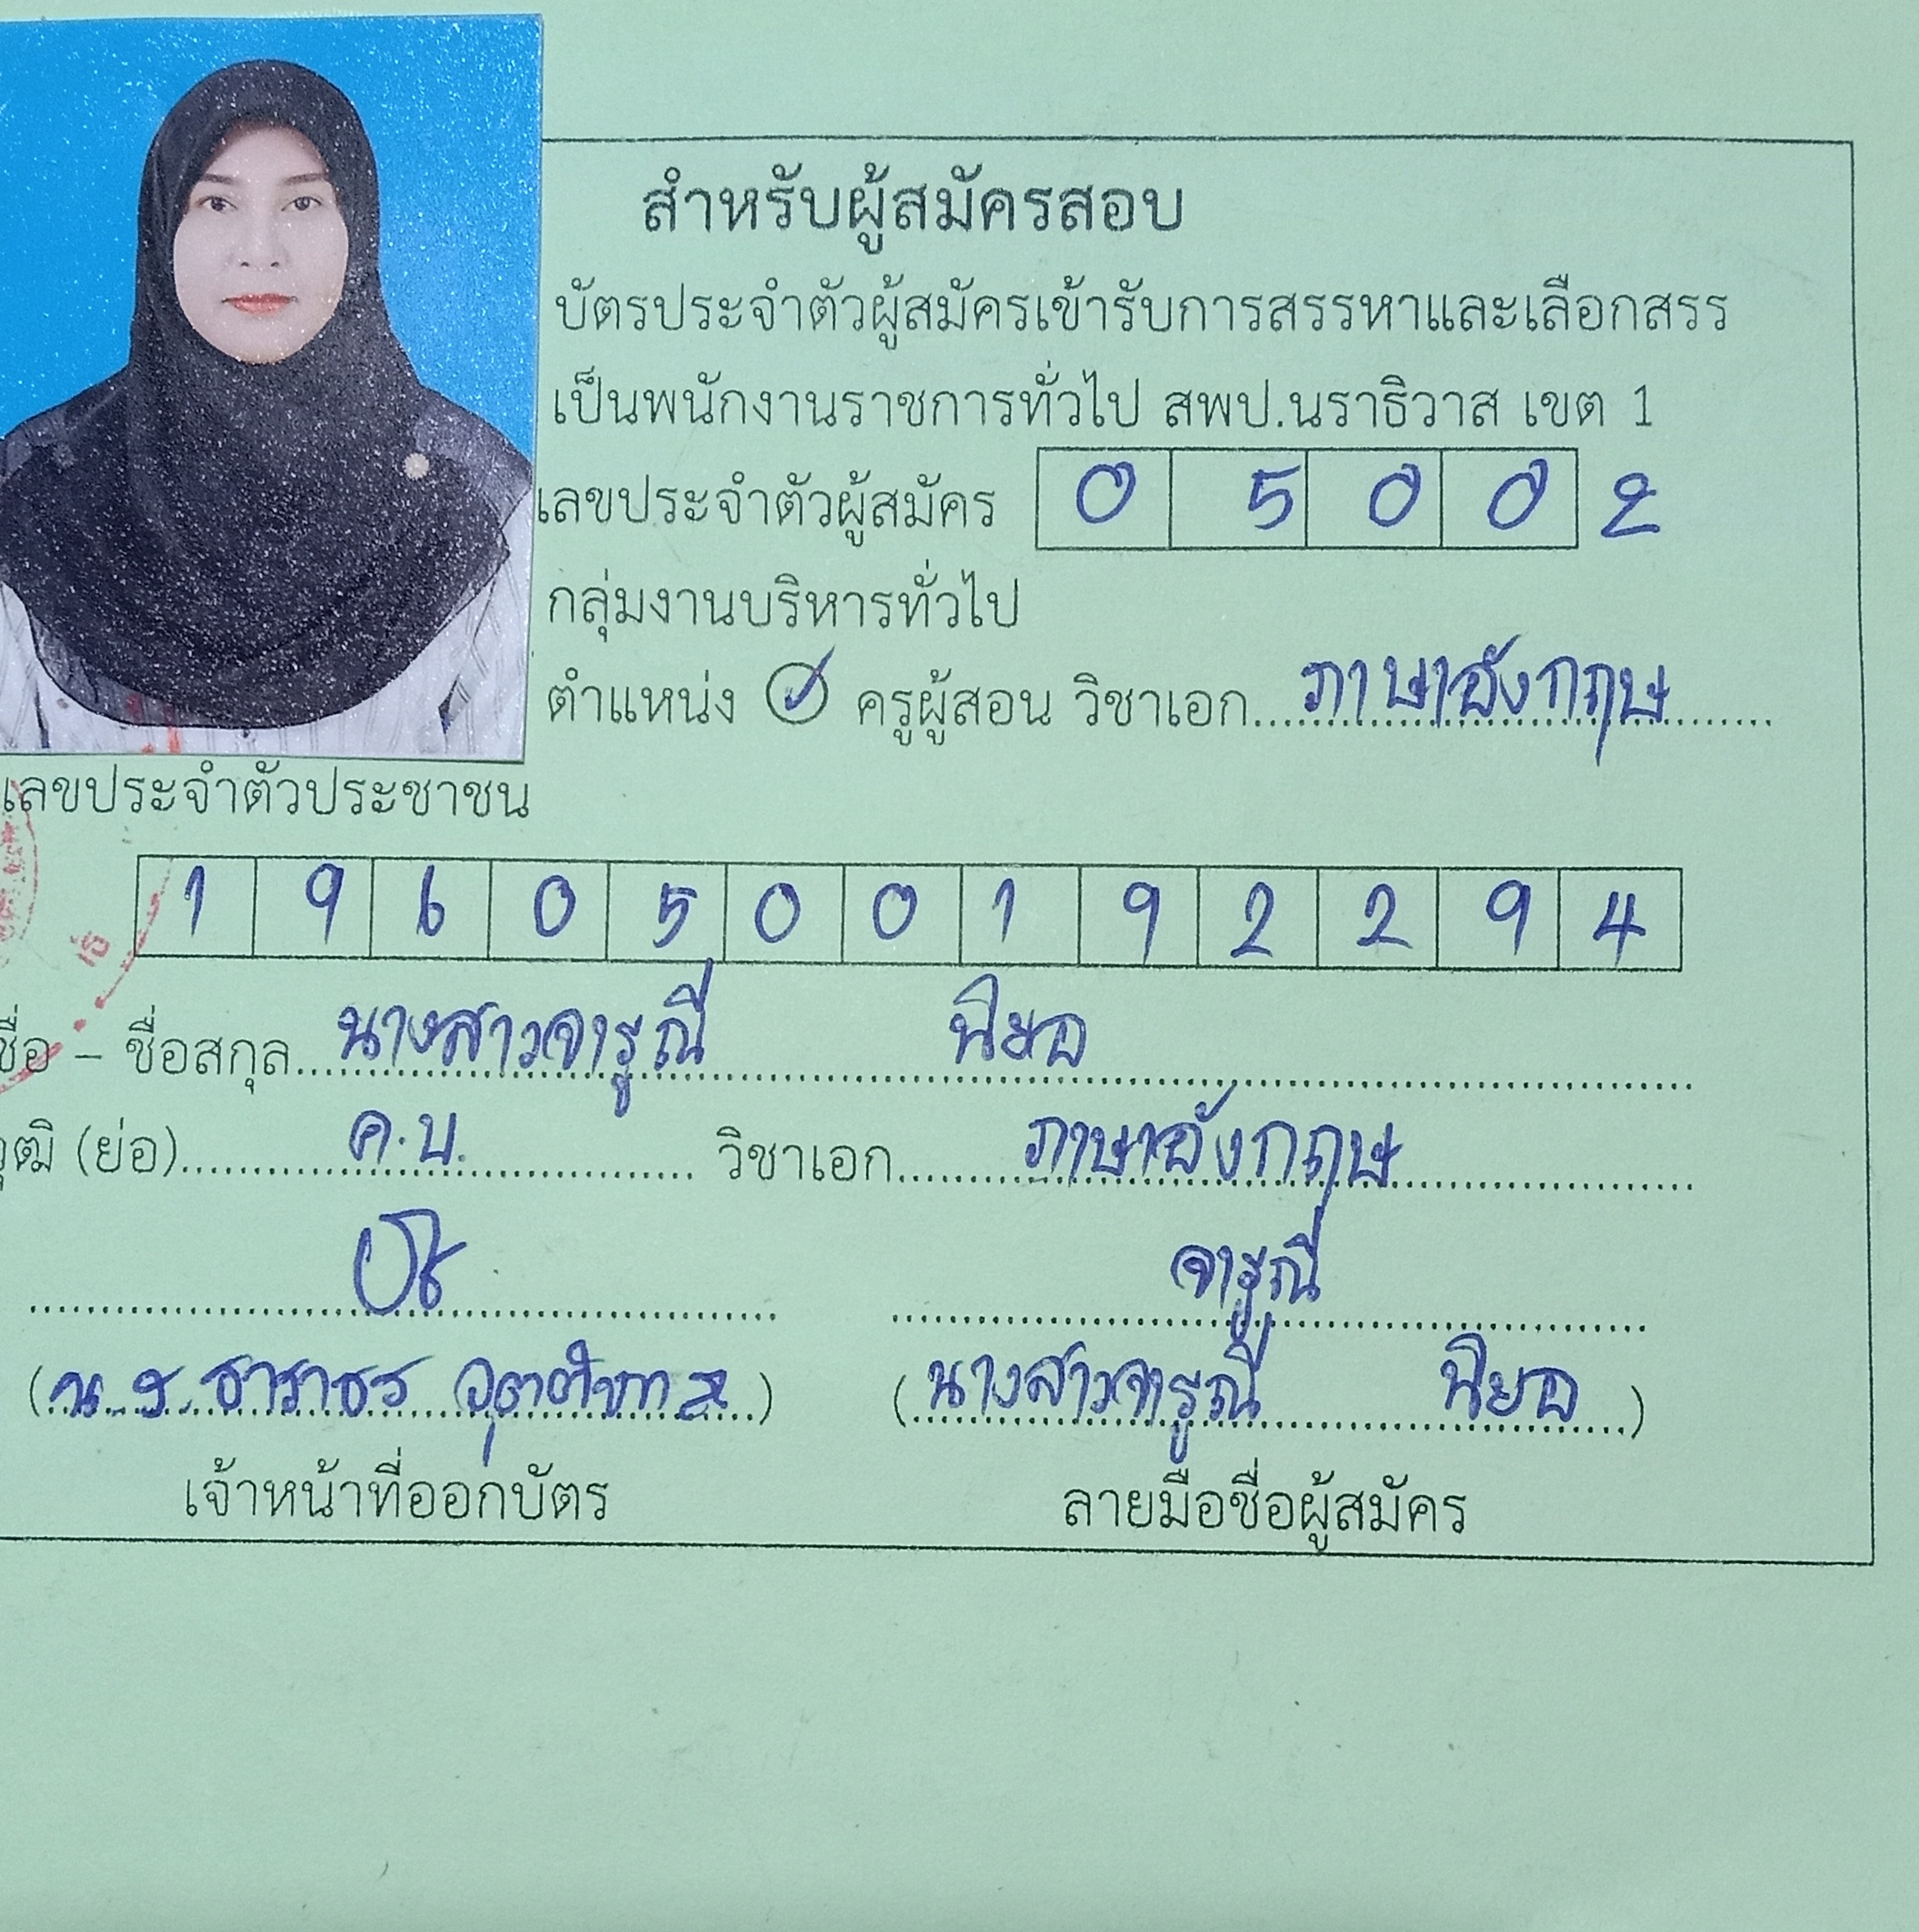 สำหรับผู้สมัครสอบ
บัตรประจำตัวผู้สมัครเข้ารับการสรรหาและเลือกสรร
เป็นพนักงานราชการทั่วไป สพป.นราธิวาส เขต 1
เลขประจำตัวผู้สมัคร 0 5 0 0 2
กลุ่มงานบริหารทั่วไป
ตำแหน่ง ✓ ครูผู้สอน วิชาเอก ภาษาอังกฤษ
เลขประจำตัวประชาชน
1 9 6 0 5 0 0 1 9 2 2 9 4
ชื่อ – ชื่อสกุล นางสาวจารุณี นิยอ
วุฒิ (ย่อ) ค.บ. วิชาเอก ภาษาอังกฤษ
จารุณี
(น.ส. ) (นางสาวจารุณี นิยอ)
เจ้าหน้าที่ออกบัตร ลายมือชื่อผู้สมัคร